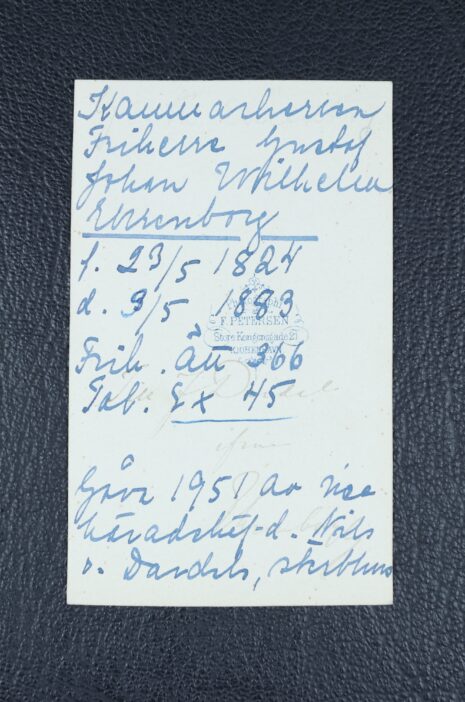 Kammarherren
Friherre Gustaf
Johan Wilhelm
Ehrenborg
f. 23/5 1824
d. 9/5 1883
F. PETERSEN
Store Kongensgade 27
KJØBENHAVN
Frih. ätt 366
Tab. 45
Gåva 1951 av vice
häradshöfd. Nils
v. Dardels,